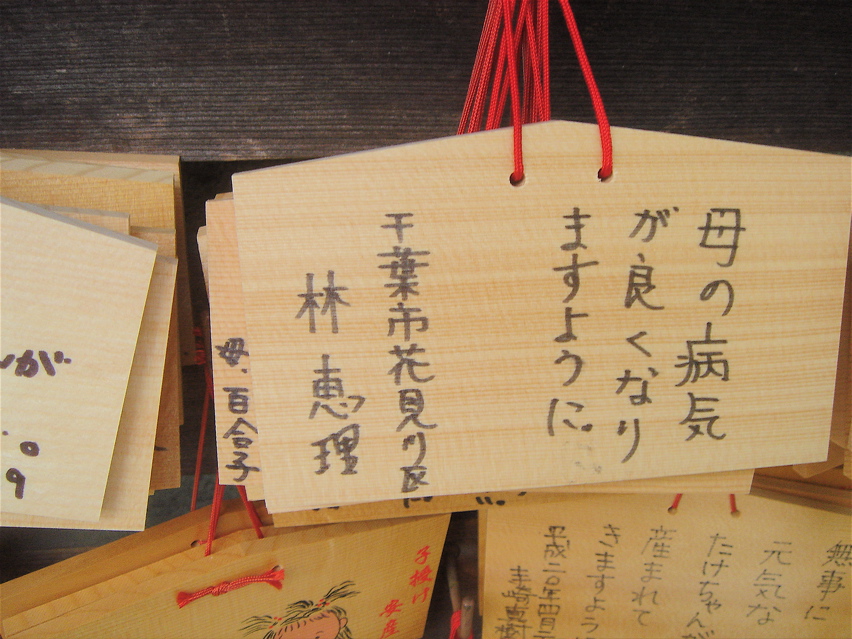 母の病気
が良くなり
ますように。
千葉市花見川区
林 恵理
母、百合子
が
9
子授け
安産
無事に
元気な
たけちゃんが
産まれて
きますように